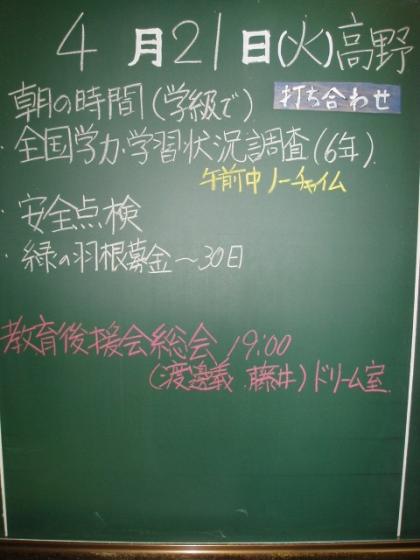 4月21日(火)高野
朝の時間(学級で) 打ち合わせ
・全国学力・学習状況調査(6年)
午前中ノーチャイム
・安全点検
・緑の羽根募金～30日
教育後援会総会 19:00
(渡邉義 藤井)ドリーム室